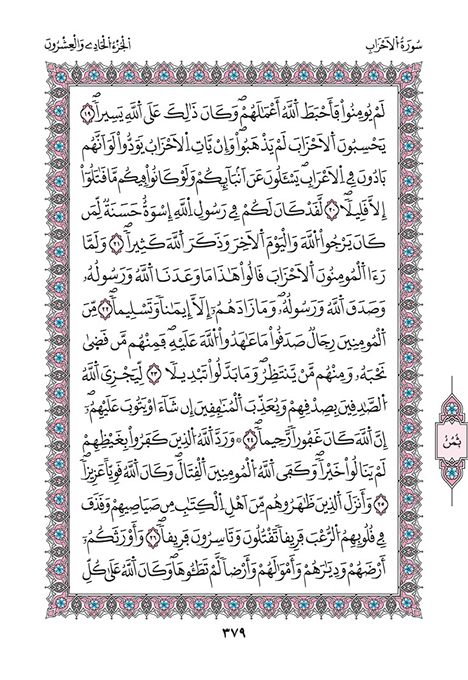 سُورَةُ اَلَاحْزَابِ
اَلْجُزْءُ الْحَادِے وَالْعِشْرُونَ
لَمْ يُومِنُواْ فَأَحْبَطَ اَللَّهُ أَعْمَٰلَهُمْۖ وَكَانَ ذَٰلِكَ عَلَى اَللَّهِ يَسِيراٗۖ ١٩
يَحْسِبُونَ اَلَاحْزَابَ لَمْ يَذْهَبُواْۖ وَإِنْ يَّاتِ اِلَاحْزَابُ يَوَدُّواْ لَوَ اَنَّهُم
بَادُونَ فِے اِلَاعْرَابِ يَسْـَٔلُونَ عَنَ اَنۢبَآئِكُمْۖ وَلَوْ كَانُواْ فِيكُم مَّا قَٰتَلُوٓاْ
إِلَّا قَلِيلاٗۖ ٢٠ لَّقَدْ كَانَ لَكُمْ فِے رَسُولِ اِللَّهِ إِسْوَةٌ حَسَنَةٞ لِّمَن
كَانَ يَرْجُواْ اُللَّهَ وَالْيَوْمَ اَلَاخِرَ وَذَكَرَ اَللَّهَ كَثِيراٗۖ ٢١ وَلَمَّا
رَءَا اَلْمُومِنُونَ اَلَاحْزَابَ قَالُواْ هَٰذَا مَا وَعَدَنَا اَللَّهُ وَرَسُولُهُۥ
وَصَدَقَ اَللَّهُ وَرَسُولُهُۥۖ وَمَا زَادَهُمُۥٓ إِلَّآ إِيمَٰناٗ وَتَسْلِيماٗۖ ٢٢ مِّنَ
اَلْمُومِنِينَ رِجَالٞ صَدَقُواْ مَا عَٰهَدُواْ اُللَّهَ عَلَيْهِۖ فَمِنْهُم مَّن قَضَىٰ
نَحْبَهُۥ وَمِنْهُم مَّنْ يَّنتَظِرُۖ وَمَا بَدَّلُواْ تَبْدِيلاٗ ٢٣ لِّيَجْزِيَ اَللَّهُ
اُلصَّٰدِقِينَ بِصِدْقِهِمْ وَيُعَذِّبَ اَلْمُنَٰفِقِينَ إِن شَآءَ اَوْ يَتُوبَ عَلَيْهِمُۥٓۖ
إِنَّ اَللَّهَ كَانَ غَفُوراٗ رَّحِيماٗۖ ٢٤ وَرَدَّ اَللَّهُ اُلذِينَ كَفَرُواْ بِغَيْظِهِمْ
لَمْ يَنَالُواْ خَيْراٗۖ وَكَفَى اَللَّهُ اُلْمُومِنِينَ اَلْقِتَالَۖ وَكَانَ اَللَّهُ قَوِيّاً عَزِيزاٗۖ
٢٥ وَأَنزَلَ اَلذِينَ ظَٰهَرُوهُم مِّنَ اَهْلِ اِلْكِتَٰبِ مِن صَيَاصِيهِمْ وَقَذَفَ
فِے قُلُوبِهِمُ اُلرُّعْبَ فَرِيقاٗ تَقْتُلُونَ وَتَاسِرُونَ فَرِيقاٗۖ ٢٦ وَأَوْرَثَكُمُۥٓ
أَرْضَهُمْ وَدِيَٰرَهُمْ وَأَمْوَٰلَهُمْ وَأَرْضاٗ لَّمْ تَطَـُٔوهَاۖ وَكَانَ اَللَّهُ عَلَىٰ كُلِّ
ثُمُنُ
٣٧٩